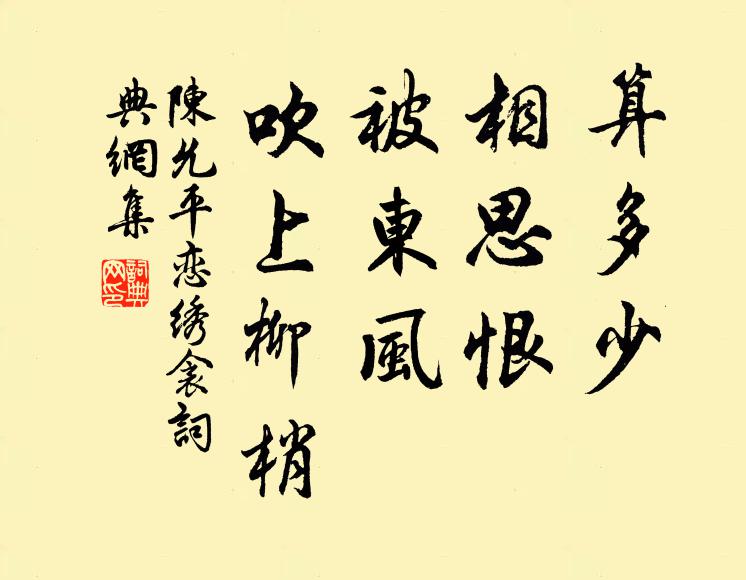 算多少
相思恨
被東風
吹上柳梢
陳允平恋绣衾詞
典網集
詞典网印